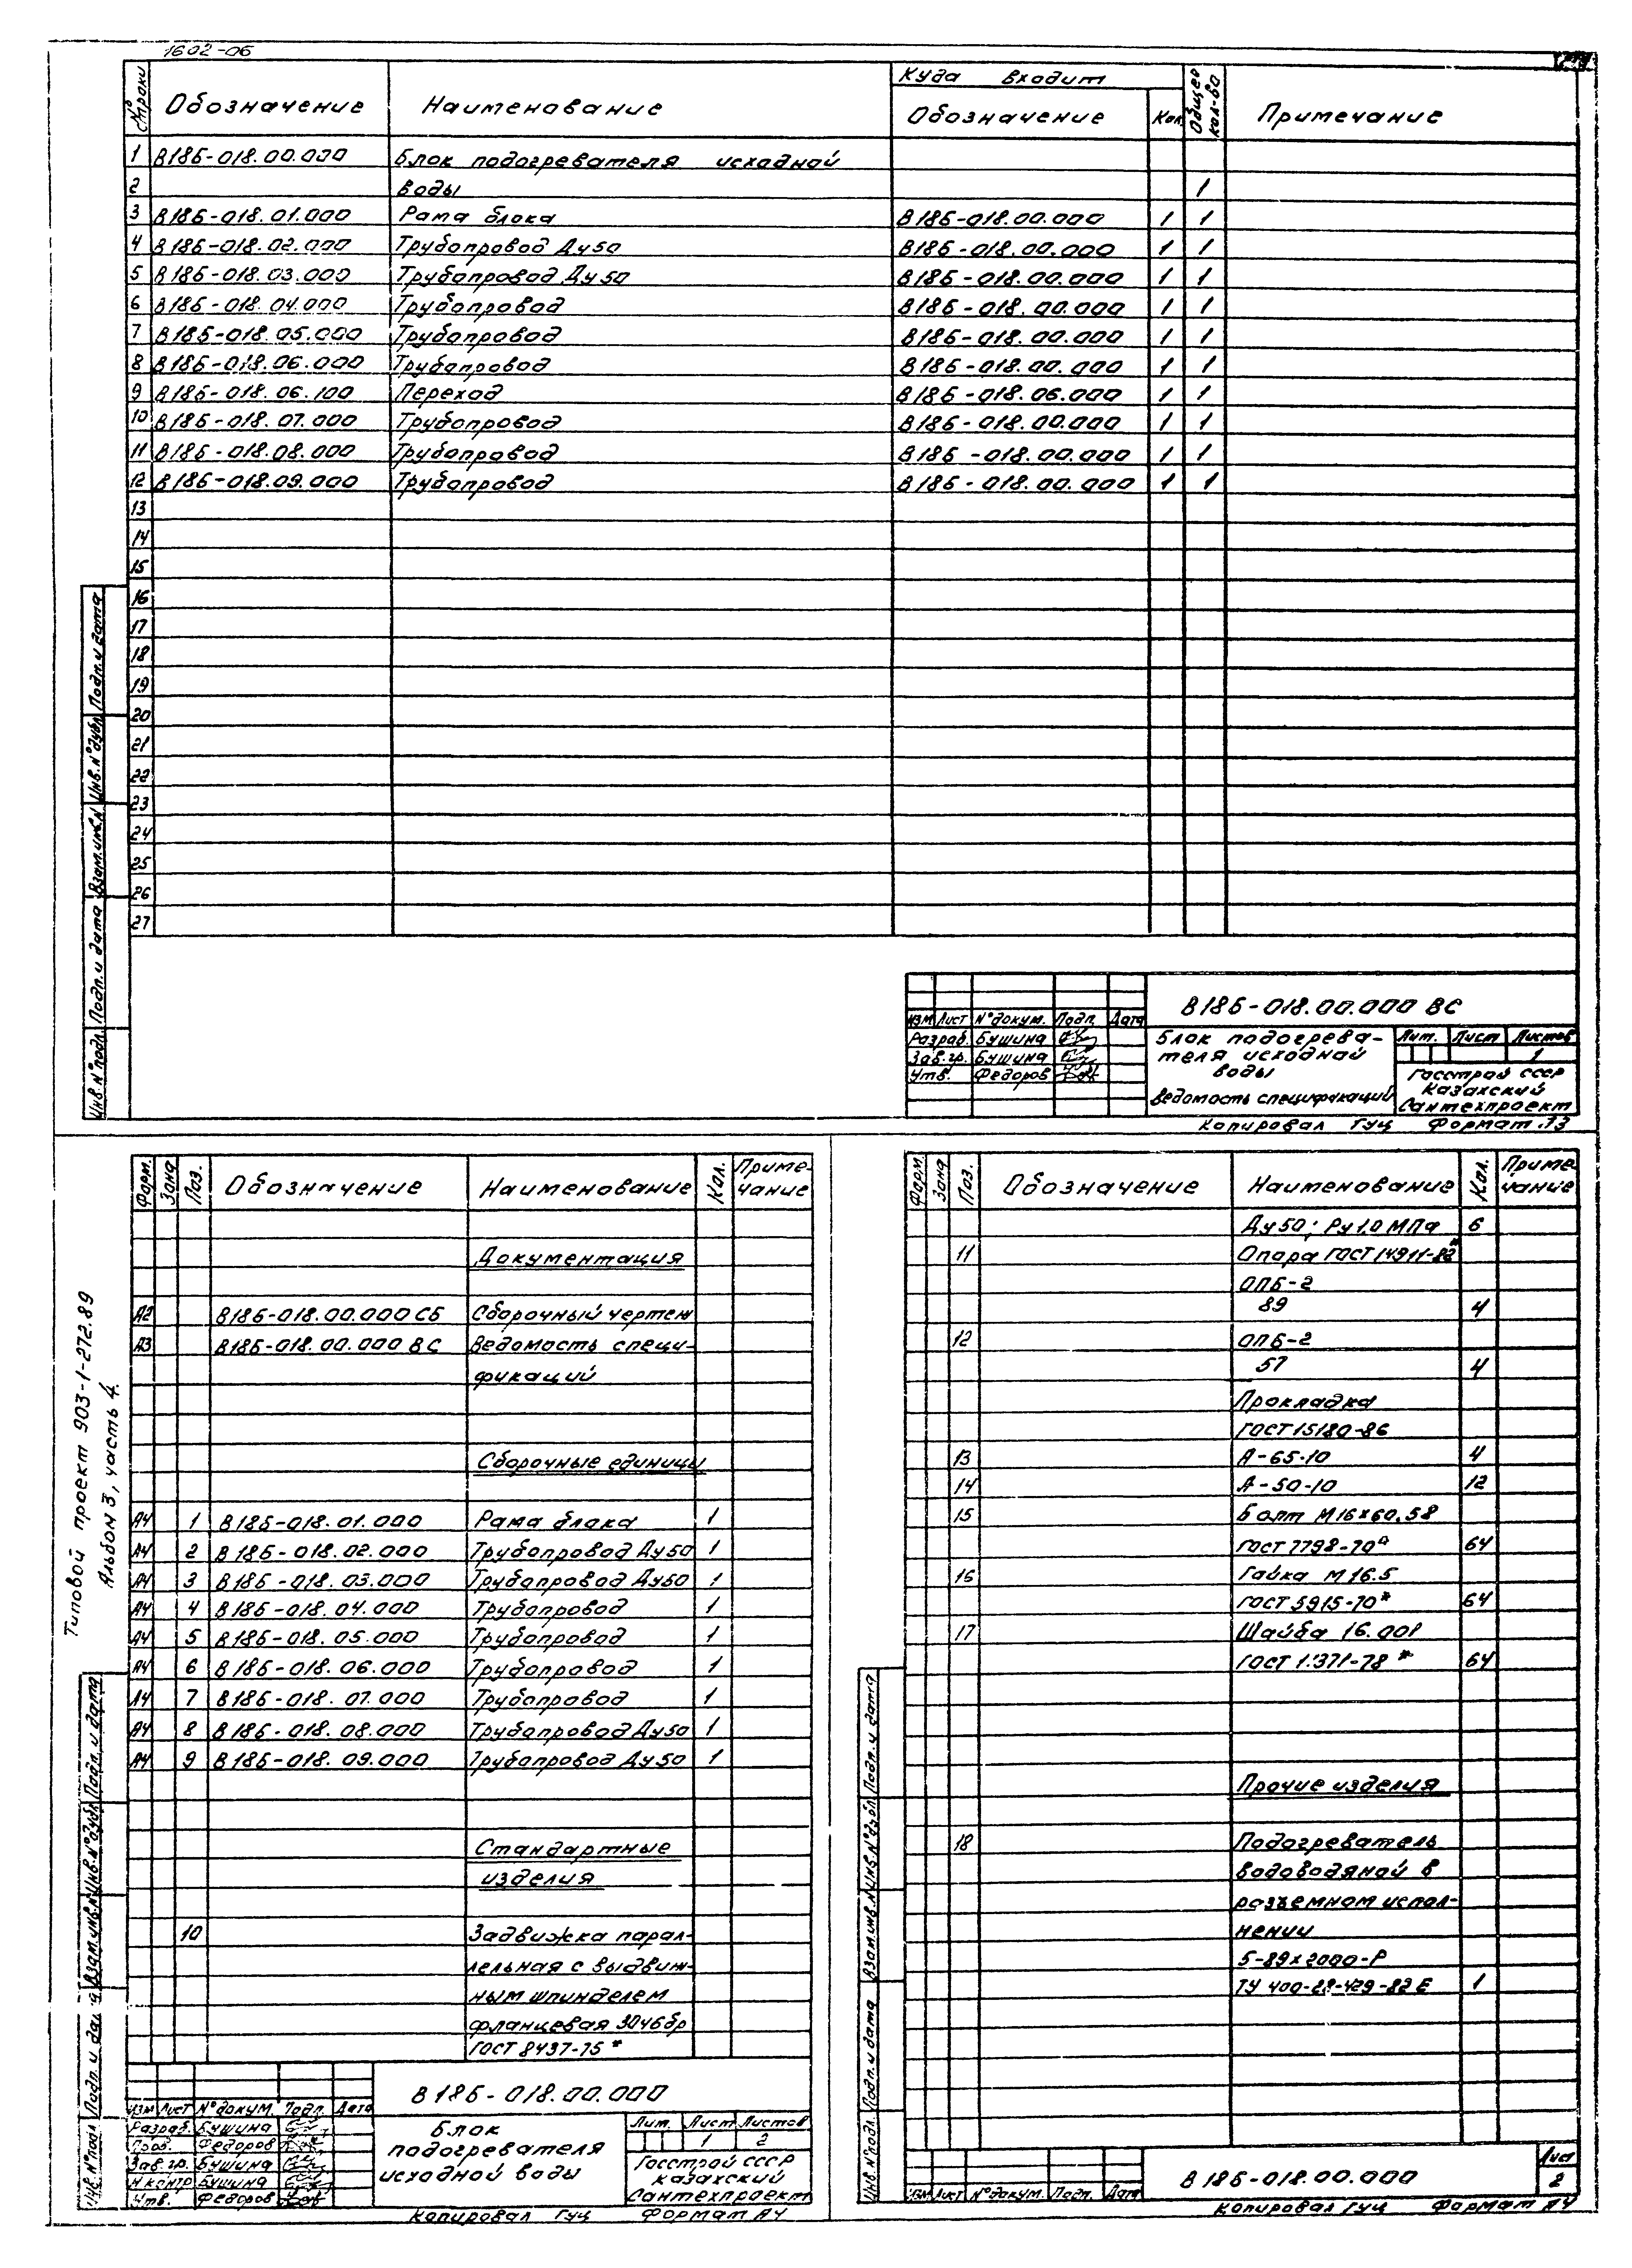 1602-06
№ строки Обозначение Наименование Куда входит Общее кол-во Примечание
Обозначение Кол.
1 В18Б-018.00.000 Блок подогревателя исходной
2 воды 1
3 В18Б-018.01.000 Рама блока В18Б-018.00.000 1 1
4 В18Б-018.02.000 Трубопровод Ду50 В18Б-018.00.000 1 1
5 В18Б-018.03.000 Трубопровод Ду50 В18Б-018.00.000 1 1
6 В18Б-018.04.000 Трубопровод В18Б-018.00.000 1 1
7 В18Б-018.05.000 Трубопровод В18Б-018.00.000 1 1
8 В18Б-018.06.000 Трубопровод В18Б-018.00.000 1 1
9 В18Б-018.06.100 Переход В18Б-018.06.000 1 1
10 В18Б-018.07.000 Трубопровод В18Б-018.00.000 1 1
11 В18Б-018.08.000 Трубопровод В18Б-018.00.000 1 1
12 В18Б-018.09.000 Трубопровод В18Б-018.00.000 1 1
13
14
15
16
17
18
19
20
21
22
23
24
25
26
27
Инв.№подл. Подп.и дата Взам.инв.№ Инв.№дубл. Подп.и дата
В18Б-018.00.000 ВС
Изм Лист №докум. Подп. Дата
Разраб. Бушина
Зав.гр. Бушина
Утв. Федоров
Блок подогрева-
теля исходной
воды
Ведомость спецификаций
Лит. Лист Листов
1
Госстрой СССР
Казахский
Сантехпроект
Копировал Гуц Формат А3
Типовой проект 903-1-272.89
Альбом 3, часть 4.
Форм. Зона Поз. Обозначение Наименование Кол. Приме-
чание
Документация
А2 В18Б-018.00.000 СБ Сборочный чертеж
А3 В18Б-018.00.000 ВС Ведомость специ-
фикаций
Сборочные единицы
А4 1 В18Б-018.01.000 Рама блока 1
А4 2 В18Б-018.02.000 Трубопровод Ду50 1
А4 3 В18Б-018.03.000 Трубопровод Ду50 1
А4 4 В18Б-018.04.000 Трубопровод 1
А4 5 В18Б-018.05.000 Трубопровод 1
А4 6 В18Б-018.06.000 Трубопровод 1
А4 7 В18Б-018.07.000 Трубопровод 1
А4 8 В18Б-018.08.000 Трубопровод Ду50 1
А4 9 В18Б-018.09.000 Трубопровод Ду50 1
Стандартные
изделия
10 Задвижка парал-
лельная с выдвиж-
ным шпинделем
фланцевая 30ч6бр
ГОСТ 8437-75*
Инв.№подл. Подп.и дата Взам.инв.№ Инв.№дубл. Подп.и дата
В18Б-018.00.000
Изм Лист №докум. Подп. Дата
Разраб. Бушина
Пров. Федоров
Зав.гр. Бушина
Н.контр Бушина
Утв. Федоров
Блок
подогревателя
исходной воды
Лит. Лист Листов
1 2
Госстрой СССР
Казахский
Сантехпроект
Копировал Гуц Формат А4
Форм. Зона Поз. Обозначение Наименование Кол. Приме-
чание
Ду50; Ру1.0 МПа 6
11 Опора ГОСТ 14911-82*
ОПБ-2
89 4
12 ОПБ-2
57 4
Прокладка
ГОСТ 15180-86
13 А-65-10 4
14 А-50-10 12
15 Болт М16х60.58
ГОСТ 7798-70* 64
16 Гайка М16.5
ГОСТ 5915-70* 64
17 Шайба 16.001
ГОСТ 11371-78* 64
Прочие изделия
18 Подогреватель
водоводяной в
разъемном испол-
нении
5-89х2000-Р
ТУ 400-28-429-82Е 1
Инв.№подл. Подп.и дата Взам.инв.№ Инв.№дубл. Подп.и дата
Изм Лист №докум. Подп. Дата
В18Б-018.00.000
Лист
2
Копировал Гуц Формат А4